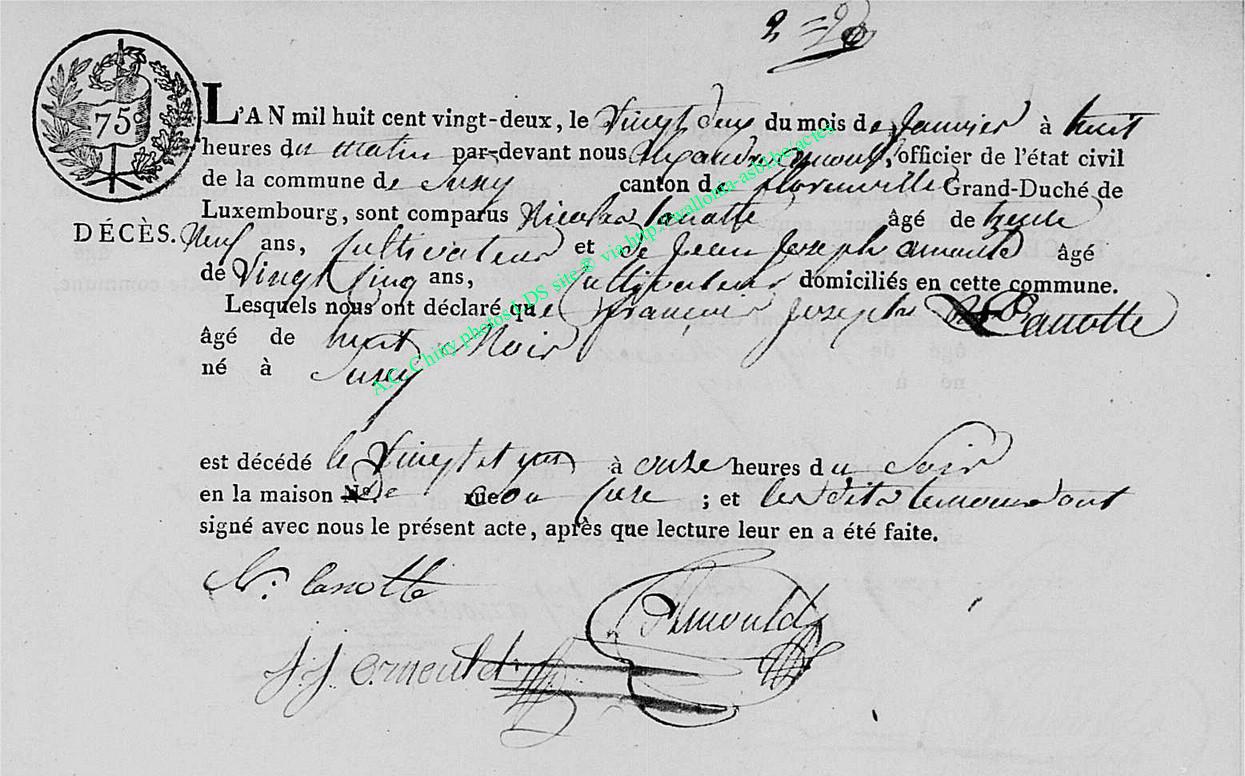 75c
L'AN mil huit cent vingt-deux, le Vingt deux du mois de Janvier à huit
heures du matin par-devant nous officier de l'état civil
de la commune de Suxy canton de florenville Grand-Duché de
Luxembourg, sont comparus Nicolas lanotte âgé de trente
DÉCÈS.
Neuf ans, Cultivateur et de Jean Joseph arnould âgé
de Vingt Cinq ans, Cultivateur domiciliés en cette commune.
Lesquels nous ont déclaré que francois Joseph Lanotte
âgé de huit Mois
né à Suxy
est décédé le Vingt et un à onze heures du Soir
en la maison No. de rue Son pere ; et les dits temoins ont
signé avec nous le présent acte, après que lecture leur en a été faite.
N. lanotte
Arnould
J. J. arnould
A.G. Chiny photos LDS site © via http://wallonia-asbl.be/actes